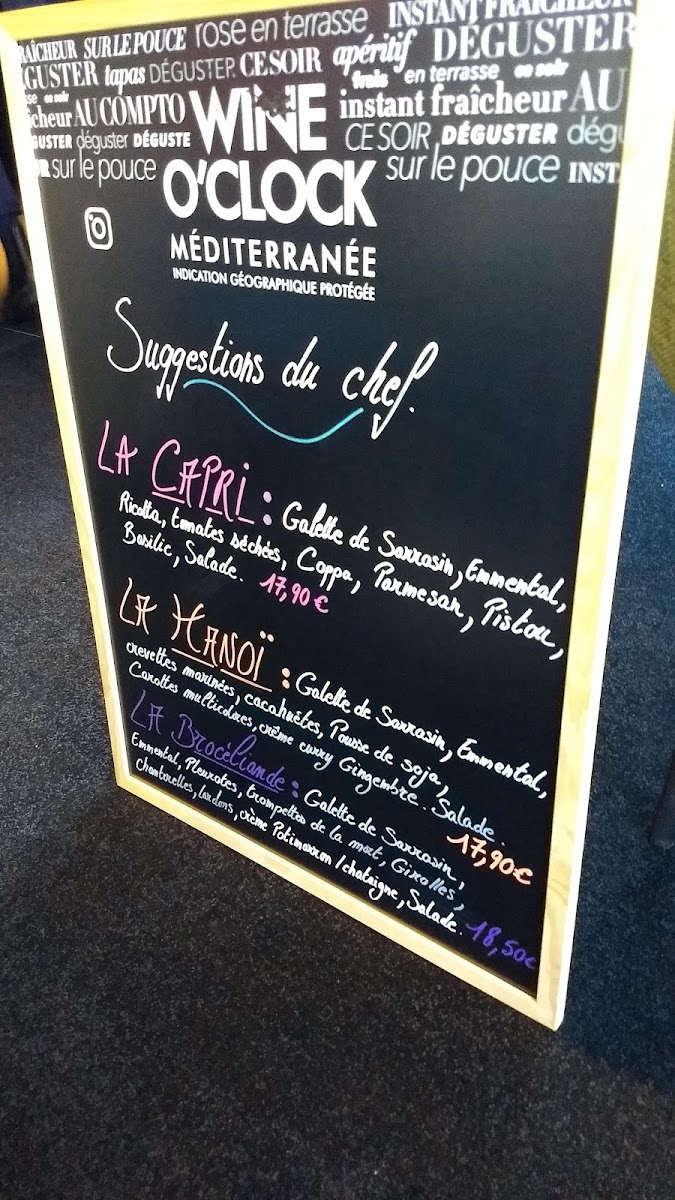 RAÎCHEUR SUR LE POUCE rosé en terrasse INSTANT FRAÎCHEUR
GUSTER tapas DÉGUSTER CE SOIR apéritif DÉGUSTER
frais en terrasse ce soir
ce soir
cheur AU COMPTO WINE instant fraîcheur AU
GUSTER déguster DÉGUSTE CE SOIR DÉGUSTER dégu
UR sur le pouce O'CLOCK sur le pouce INST
MÉDITERRANÉE
INDICATION GÉOGRAPHIQUE PROTÉGÉE
Suggestions du chef.
LA CAPRI : Galette de Sarrasin, Emmental,
Ricotta, tomates séchées, Coppa, Parmesan, Pistou,
Basilic, Salade. 17,90€
LA HANOÏ : Galette de Sarrasin, Emmental,
crevettes marinées, cacahuètes, Pousse de soja,
Carottes multicolores, crème curry Gingembre. Salade.
17,90€
LA Brocéliande : Galette de Sarrasin,
Emmental, Pleurotes, trompettes de la mort, Girolles,
chanterelles, lardons, crème Potimarron / chataigne, Salade. 18,50€